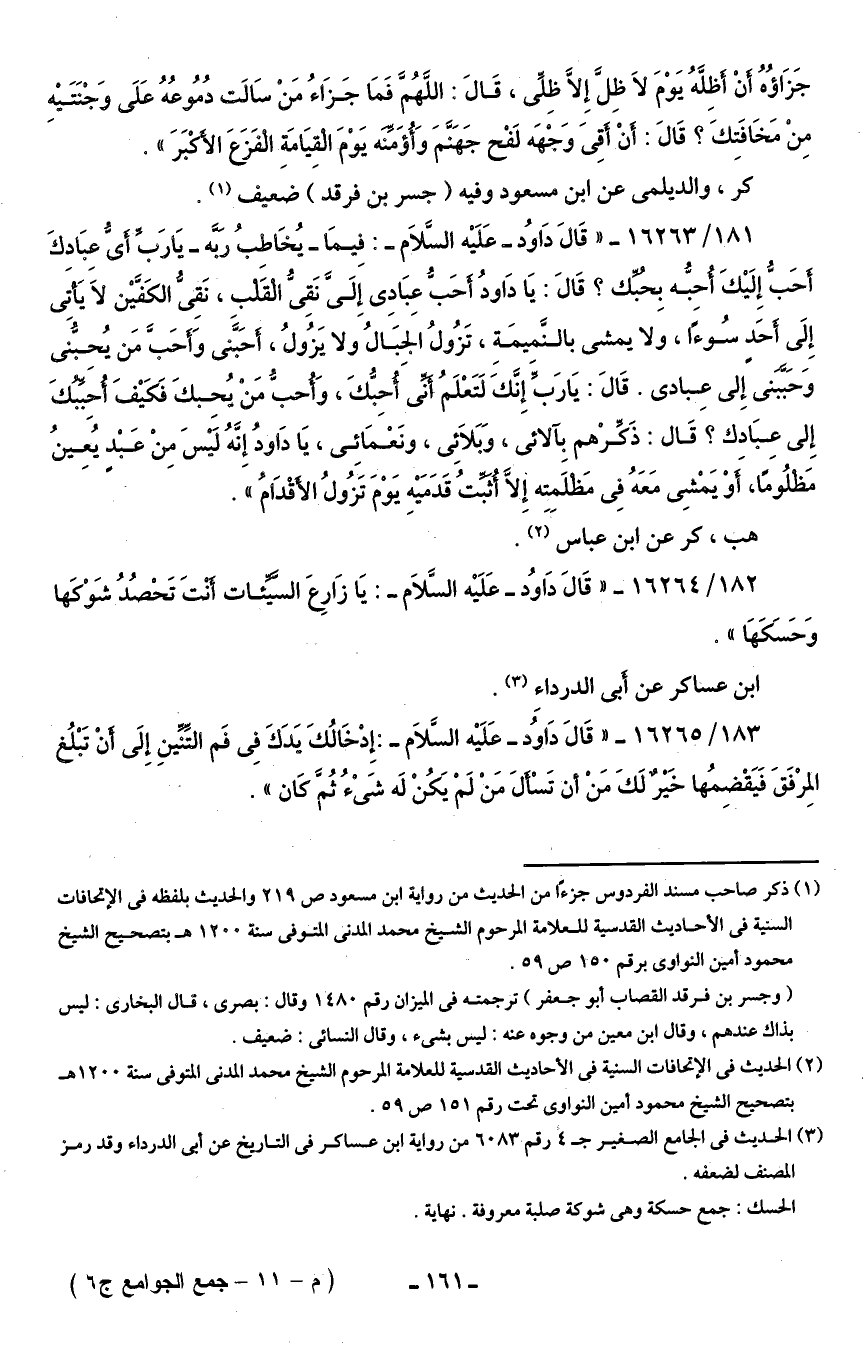 جَزَاؤُهُ أَنْ أُظِلَّهُ يَوْمَ لاَ ظِلَّ إِلاَّ ظِلِّى ، قَالَ : اللَّهُمَّ فَمَا جَزَاءُ مَنْ سَالَت دُمُوعُهُ عَلَى وَجْنَتَيْهِ
مِنْ مَخَافَتِكَ ؟ قَالَ : أَنْ أَقِىَ وَجْهَه لَفْحَ جَهَنَّمَ وَأُؤَمِّنَه يَوْمَ القِيَامَةِ الْفَزَعَ الأَكْبَرَ » .
كر ، والديلمى عن ابن مسعود وفيه ( جسر بن فرقد ) ضعيف (١) .
١٨١/ ١٦٢٦٣ ـ « قَالَ دَاوُد ـ عَلَيْهِ السَّلَام ـ : فِيمَا ـ يُخَاطِبُ رَبَّه ـ يَارَبِّ أَىُّ عِبَادِكَ
أَحَبُّ إِلَيْكَ أُحِبُّه بِحُبِّك ؟ قَالَ : يَا دَاوُدُ أَحَبُّ عِبَادِى إِلَىَّ نَقِىُّ القَلْبِ ، نَقِىُّ الكَفَّيْنِ لاَ يَأْتِى
إِلَى أَحَدٍ سُوءًا ، ولا يمشى بالنَّمِيمَةِ ، تَزُولُ الجِبَالُ ولا يَزُولُ ، أَحَبَّنِى وَأَحَبَّ مَن يُحِبُّنِى
وَحَبَّبَنِى إلى عِبادى . قَالَ : يَارَبِّ إِنَّكَ لَتَعْلَمُ أَنِّى أُحِبُّكَ ، وَأُحبُّ مَنْ يُحبكَ فَكَيْفَ أُحَبِّبُكَ
إلى عِبَادِك ؟ قَال : ذَكِّرْهم بِآلائى ، وَبَلَائِى ، ونَعْمَائِى ، يَا دَاودُ إِنَّهُ لَيْسَ مِنْ عَبْدٍ يُعِينُ
مَظْلُومًا، أَوْ يَمْشِى مَعَهُ فِى مَظْلَمِتِه إِلاَّ أُثَبِّتُ قَدَمَيْهِ يَوْمَ تَزُولُ الأَقْدَامُ » .
هب ، كر عن ابن عباس (٢) .
١٨٢/ ١٦٢٦٤ ـ « قَالَ دَاوُد ـ عَلَيْهِ السَّلَام ـ : يَا زَارِعَ السَّيِّئَات أَنْتَ تَحْصُدُ شَوْكَها
وَحَسَكَهَا » .
ابن عساكر عن أبى الدرداء (٣) .
١٨٣/ ١٦٢٦٥ ـ « قَالَ دَاوُد ـ عَلَيْهِ السَّلَام ـ :إِدْخَالُكَ يَدَكَ فِى فَمِ التِّنِّينِ إِلَى أَنْ تَبْلُغ
المِرْفَقَ فَيَقْضِمُها خَيْرٌ لَكَ مَنْ أن تَسْأَلَ مَنْ لَمْ يَكُنْ لَه شَىْءُ ثُمَّ كَان » .
(١) ذكر صاحب مسند الفردوس جزءًا من الحديث من رواية ابن مسعود ص ٢١٩ والحديث بلفظه فى الإتحافات
السنية فى الأحاديث القدسية للعلامة المرحوم الشيخ محمد المدنى المتوفى سنة ١٢٠٠ هـ بتصحيح الشيخ
محمود أمين النواوى برقم ١٥٠ ص ٥٩ .
( وجسر بن فرقد القصاب أبو جعفر ) ترجمته فى الميزان رقم ١٤٨٠ وقال : بصرى ، قال البخارى : ليس
بذاك عندهم ، وقال ابن معين من وجوه عنه : ليس بشىء ، وقال النسائى : ضعيف .
(٢) الحديث فى الإتحافات السنية فى الأحاديث القدسية للعلامة المرحوم الشيخ محمد المدنى المتوفى سنة ١٢٠٠هـ
بتصحيح الشيخ محمود أمين النواوى تحت رقم ١٥١ ص ٥٩ .
(٣) الحديث فى الجامع الصغير جـ ٤ رقم ٦٠٨٣ من رواية ابن عساكر فى التاريخ عن أبى الدرداء وقد رمز
المصنف لضعفه .
الحسك : جمع حسكة وهى شوكة صلبة معروفة . نهاية .
ـ ١٦١ ـ ( م – ١١ – جمع الجوامع ج٦ )